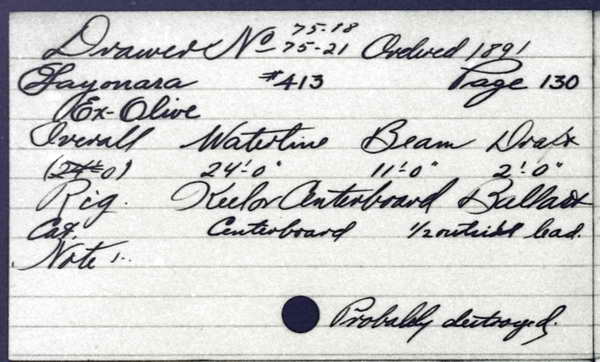 Drawer No 75-18
75-21 Ordered 1891
Sayonara #413 Page 130
Ex-Olive
Overall Waterline Beam Draft
(24'-0) 24'-0" 11'-0" 2'-0"
Rig. Keel or Centerboard Ballast
Cat. Centerboard 1/2 outside lead.
Note:-
Probably destroyed.